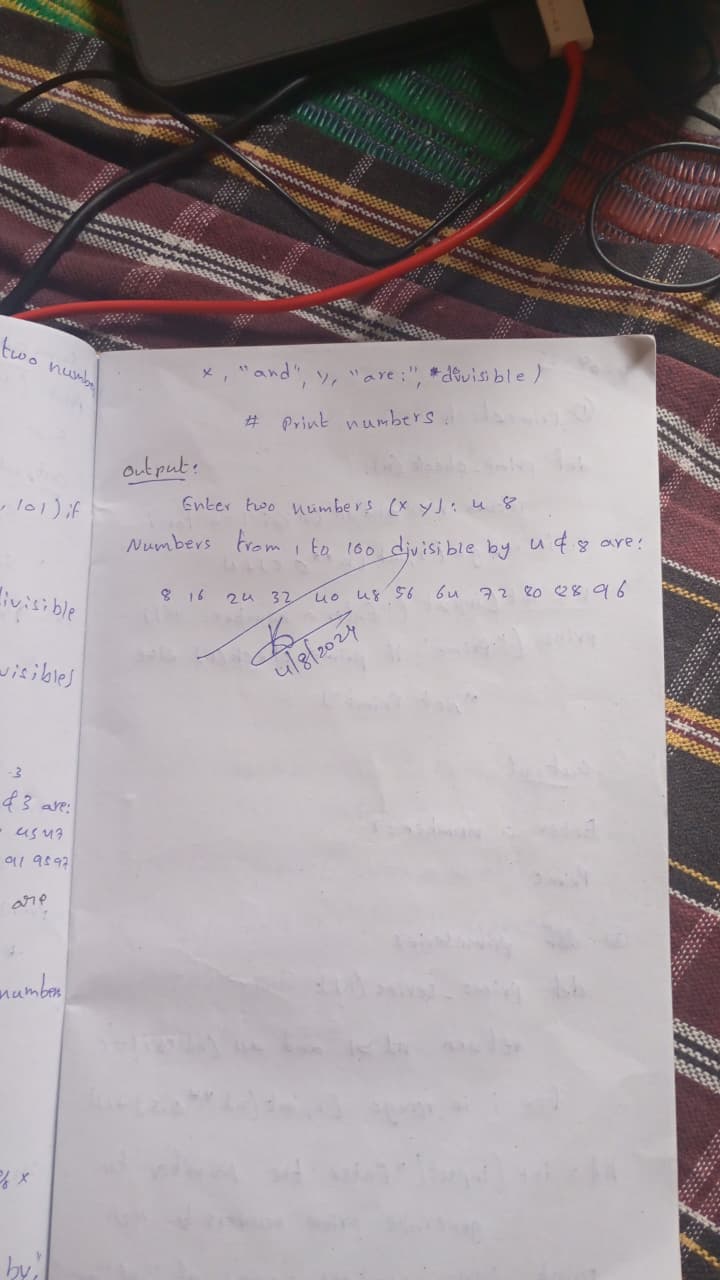 two numbe
, 101) if
divisible
visibles
-3
& 3 are:
45 47
91 95 97
are
number
% x
by,"
x, "and", y, "are:", *divisible)
# Print numbers.
output:
Enter two numbers (x y): 4 8
Numbers from 1 to 100 divisible by 4 & 8 are:
8 16 24 32 40 48 56 64 72 80 88 96
4/8/2024